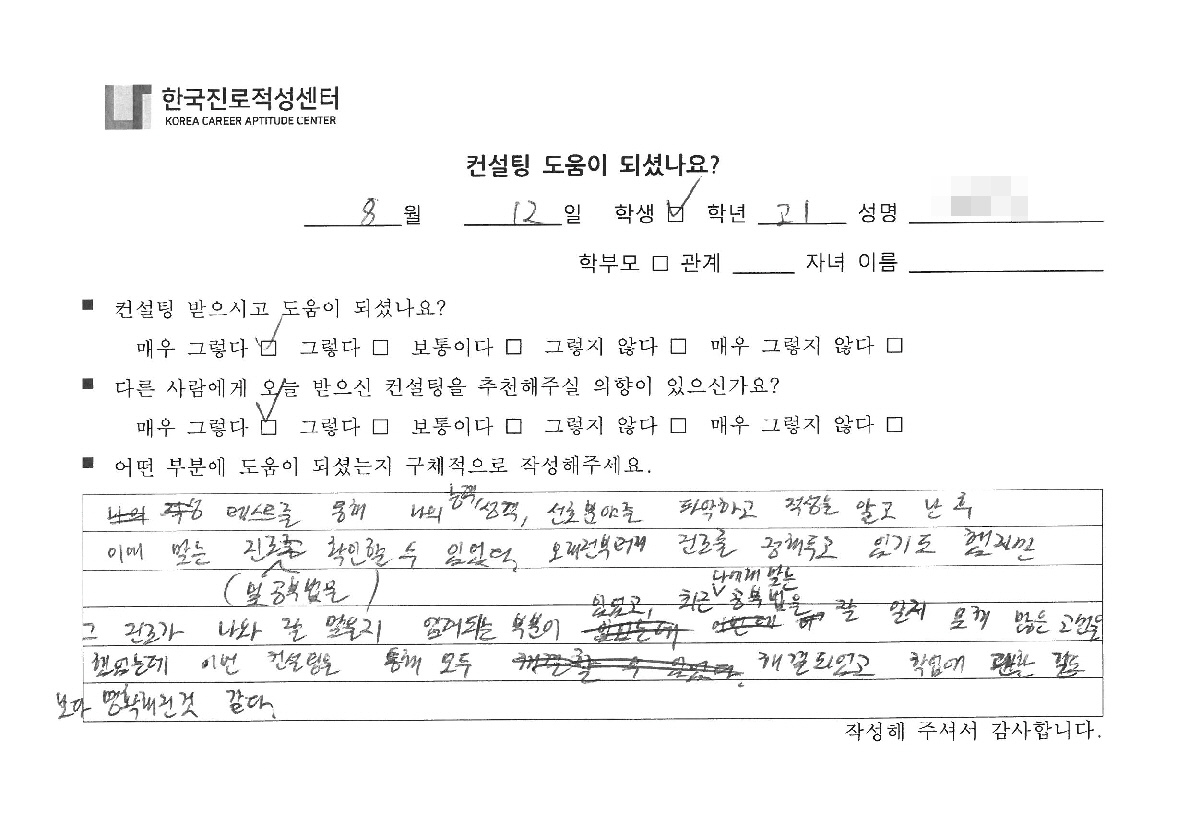 한국진로적성센터
KOREA CAREER APTITUDE CENTER
컨설팅 도움이 되셨나요?
8 월 12 일 학생 ☑ 학년 고1 성명
학부모 □ 관계 자녀 이름
■ 컨설팅 받으시고 도움이 되셨나요?
매우 그렇다 ☑ 그렇다 □ 보통이다 □ 그렇지 않다 □ 매우 그렇지 않다 □
■ 다른 사람에게 오늘 받으신 컨설팅을 추천해주실 의향이 있으신가요?
매우 그렇다 ☑ 그렇다 □ 보통이다 □ 그렇지 않다 □ 매우 그렇지 않다 □
■ 어떤 부분에 도움이 되셨는지 구체적으로 작성해주세요.
테스트를 통해 나의 능력, 성격, 선호분야를 파악하고 적성을 알고 난 후
이에 맞는 진로를 확인할 수 있었다. 오래전부터 진로를 정해두고 있기도 했지만
(및 공부법을) 나에게 맞는
그 진로가 나와 잘 맞을지 염려되는 부분이 있었고, 최근 공부법을 잘 알지 못해 많은 고민을
했었는데 이번 컨설팅을 통해 모두 해결되었고 학업에 관한 길도
보다 명확해진것 같다.
작성해 주셔서 감사합니다.